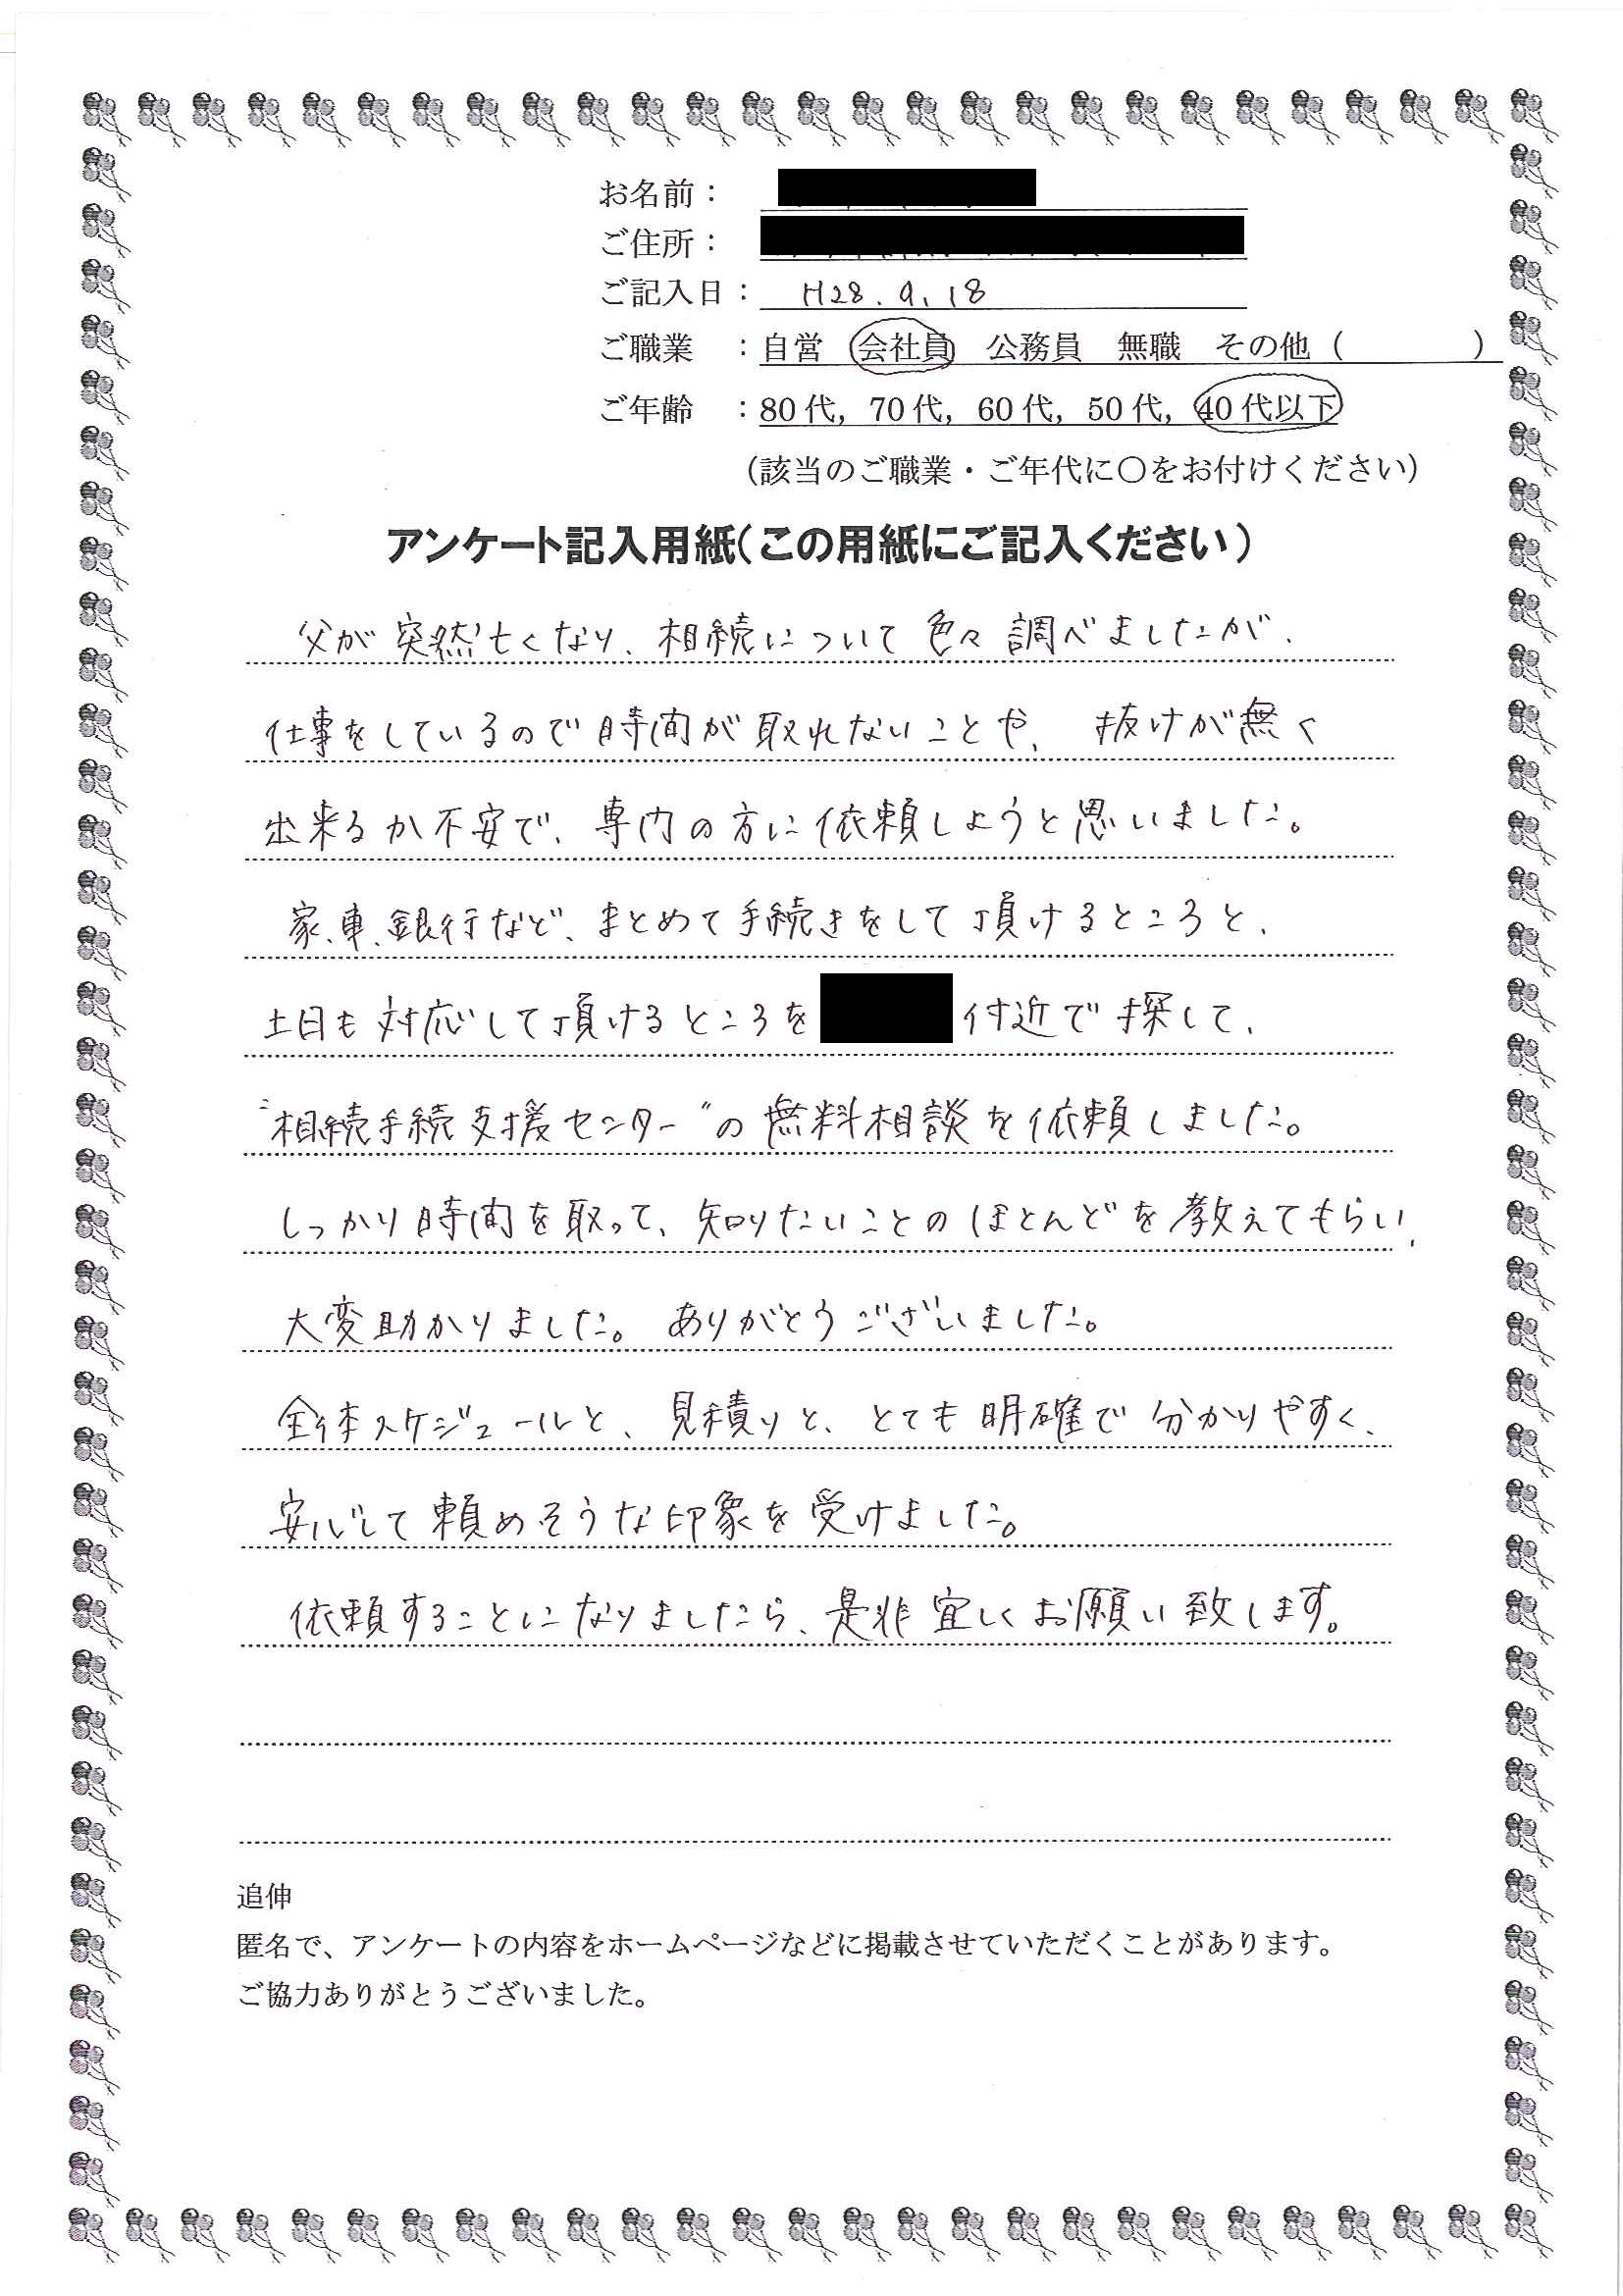 お名前：
ご住所：
ご記入日： H28.9.18
ご職業　：自営　会社員　公務員　無職　その他（　　　　）
ご年齢　：80代，70代，60代，50代，40代以下
（該当のご職業・ご年代に〇をお付けください）
アンケート記入用紙（この用紙にご記入ください）
父が突然亡くなり、相続について色々調べましたが、
仕事をしているので時間が取れないことや、抜けが無く
出来るか不安で、専門の方に依頼しようと思いました。
家、車、銀行など、まとめて手続きをして頂けるところと、
土日も対応して頂けるところを 付近で探して、
"相続手続支援センター"の無料相談を依頼しました。
しっかり時間を取って、知りたいことのほとんどを教えてもらい、
大変助かりました。ありがとうございました。
全体スケジュールと、見積りと、とても明確で分かりやすく、
安心して頼めそうな印象を受けました。
依頼することになりましたら、是非宜しくお願い致します。
追伸
匿名で、アンケートの内容をホームページなどに掲載させていただくことがあります。
ご協力ありがとうございました。